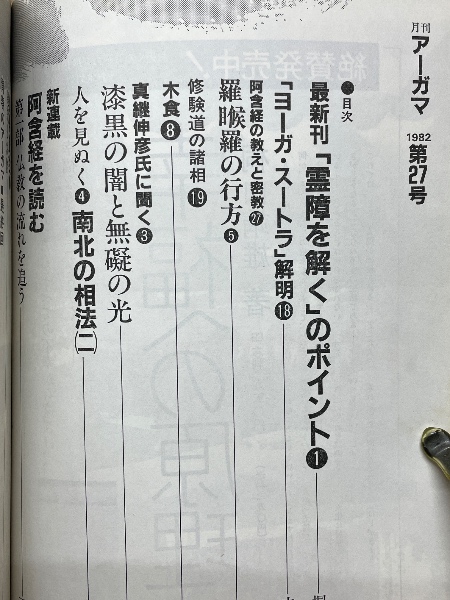 月刊
アーガマ
1982
第27号
●目次
最新刊「霊障を解く」のポイント❶
「ヨーガ・スートラ」解明⓲
阿含経の教えと密教㉗
羅睺羅の行方❺
修験道の諸相⓳
木食❽
真継伸彦氏に聞く❸
漆黒の闇と無礙の光
人を見ぬく❹
南北の相法(二)
新連載
阿含経を読む
第一部 仏教の流れを追う
絶賛発売中!